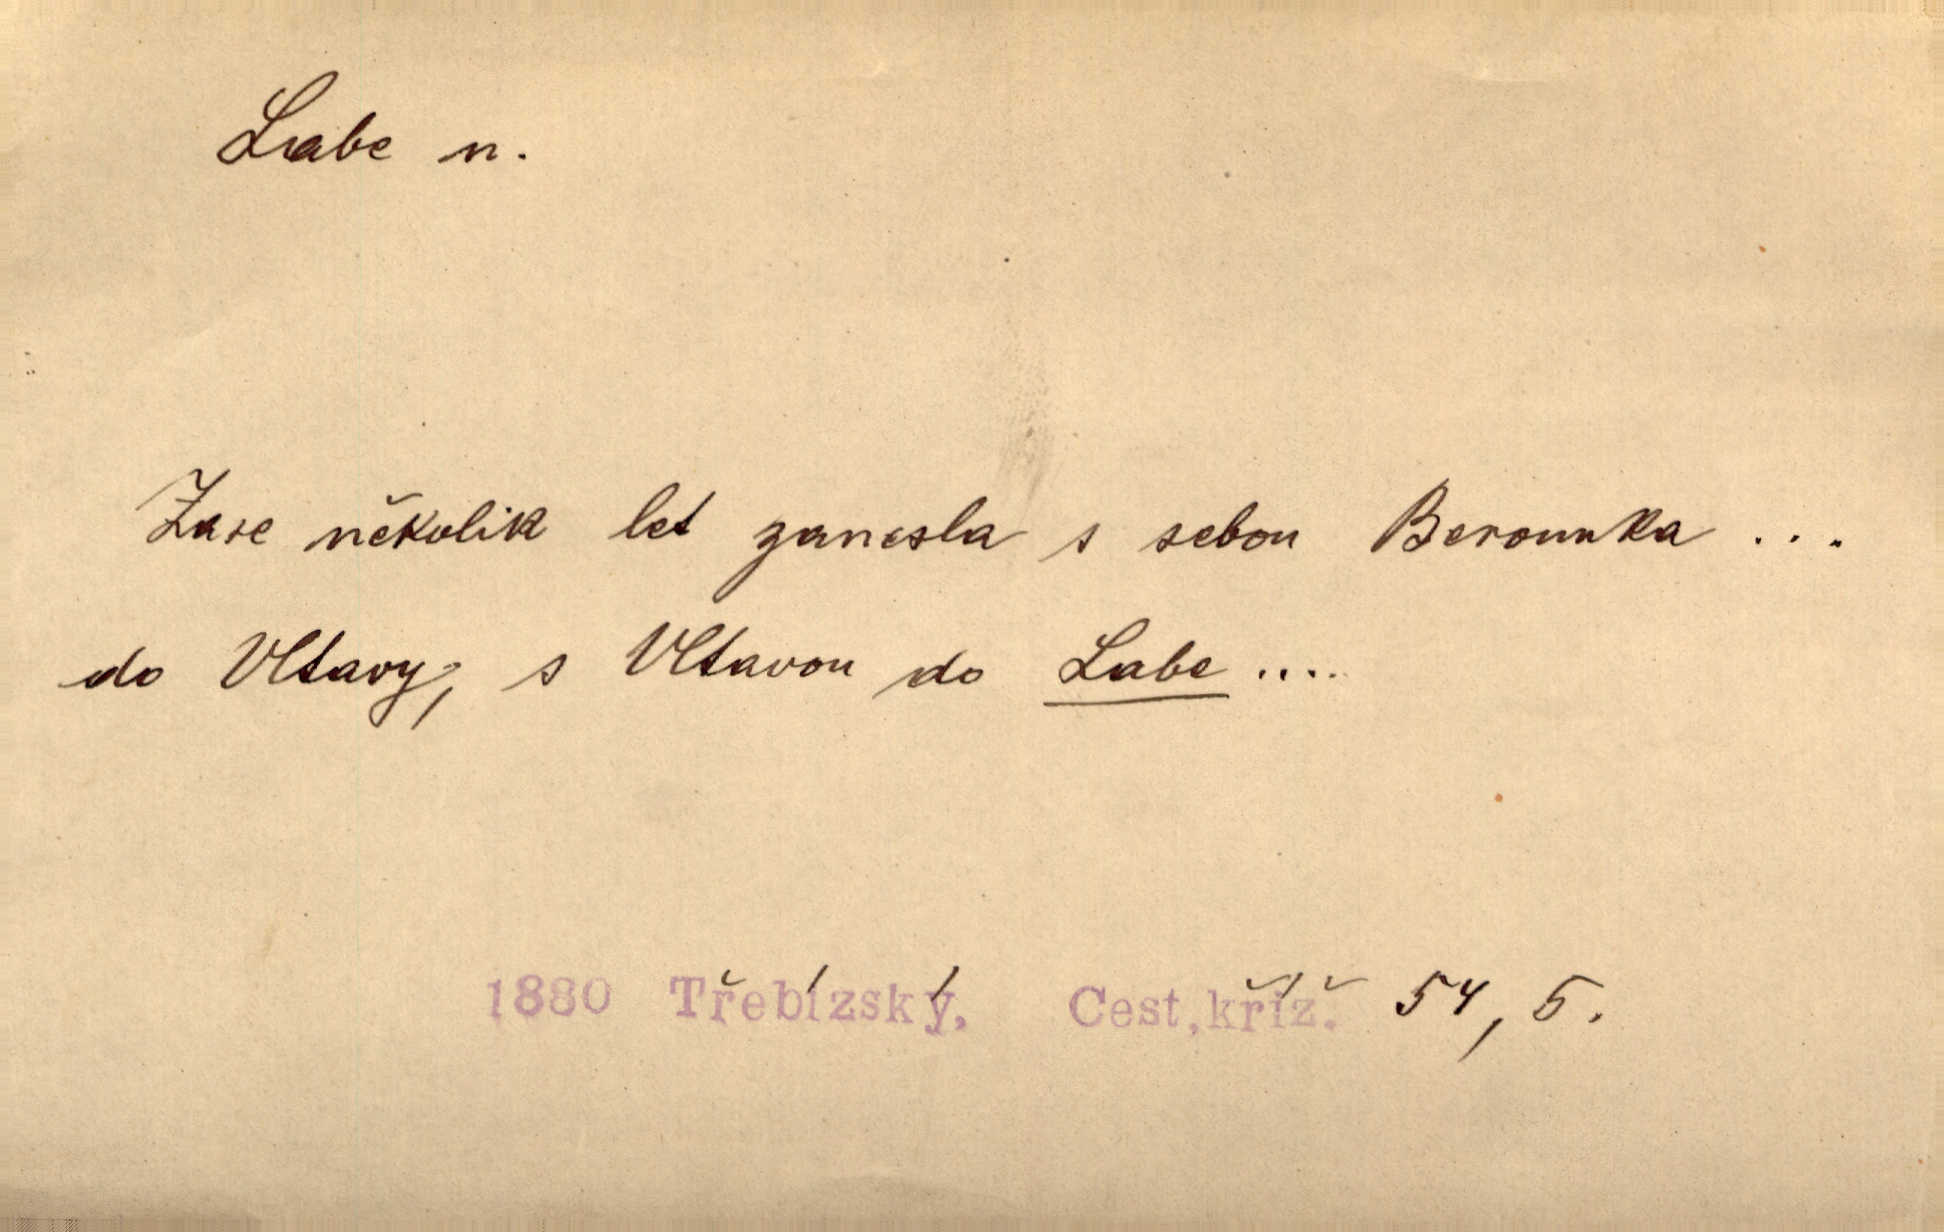 Labe n.
Zase několik let zanesla s sebou Berounka ...
do Vltavy, s Vltavou do Labe ....
1880 Třebízský, Cest.kříž. 54, 5.